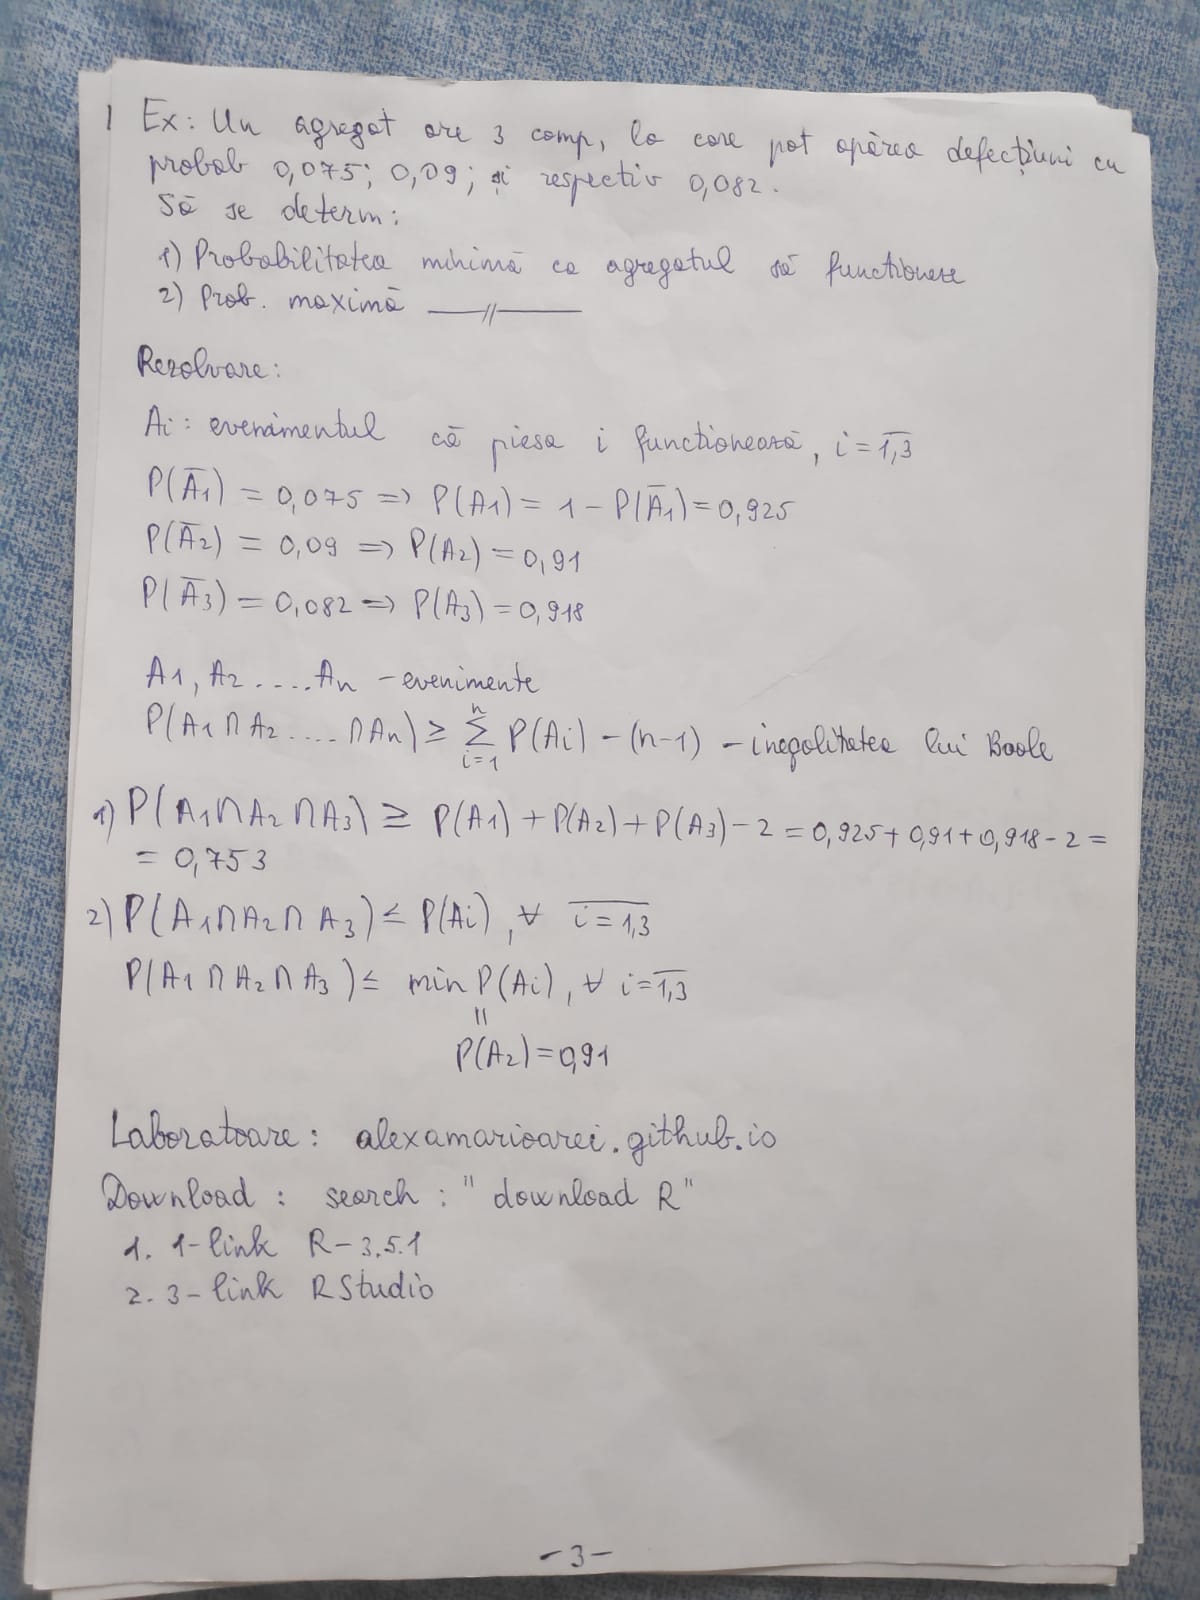 1 Ex: Un agregat are 3 comp, la care pot apărea defecțiuni cu
probab 0,075; 0,09; și respectiv 0,082.
Să se determ:
1) Probabilitatea minimă ca agregatul să functioneze
2) Prob. maximă —//—
Rezolvare:
Ai: evenimentul că piesa i functionează, i=1,3̅
P(A̅1) = 0,075 => P(A1) = 1 - P(A̅1) = 0,925
P(A̅2) = 0,09 => P(A2) = 0,91
P(A̅3) = 0,082 => P(A3) = 0,918
A1, A2 .... An - evenimente
P(A1 ∩ A2 .... ∩ An) ≥ ∑ᵢ₌₁ⁿ P(Ai) - (n-1) - inegalitatea lui Boole
1) P(A1 ∩ A2 ∩ A3) ≥ P(A1) + P(A2) + P(A3) - 2 = 0,925 + 0,91 + 0,918 - 2 =
= 0,753
2) P(A1 ∩ A2 ∩ A3) ≤ P(Ai), ∀ i=1,3
P(A1 ∩ A2 ∩ A3) ≤ min P(Ai), ∀ i=1,3
||
P(A2) = 0,91
Laboratoare: alexamarioarei.github.io
Download: search: "download R"
1. 1-link R-3.5.1
2. 3-link RStudio
-3-